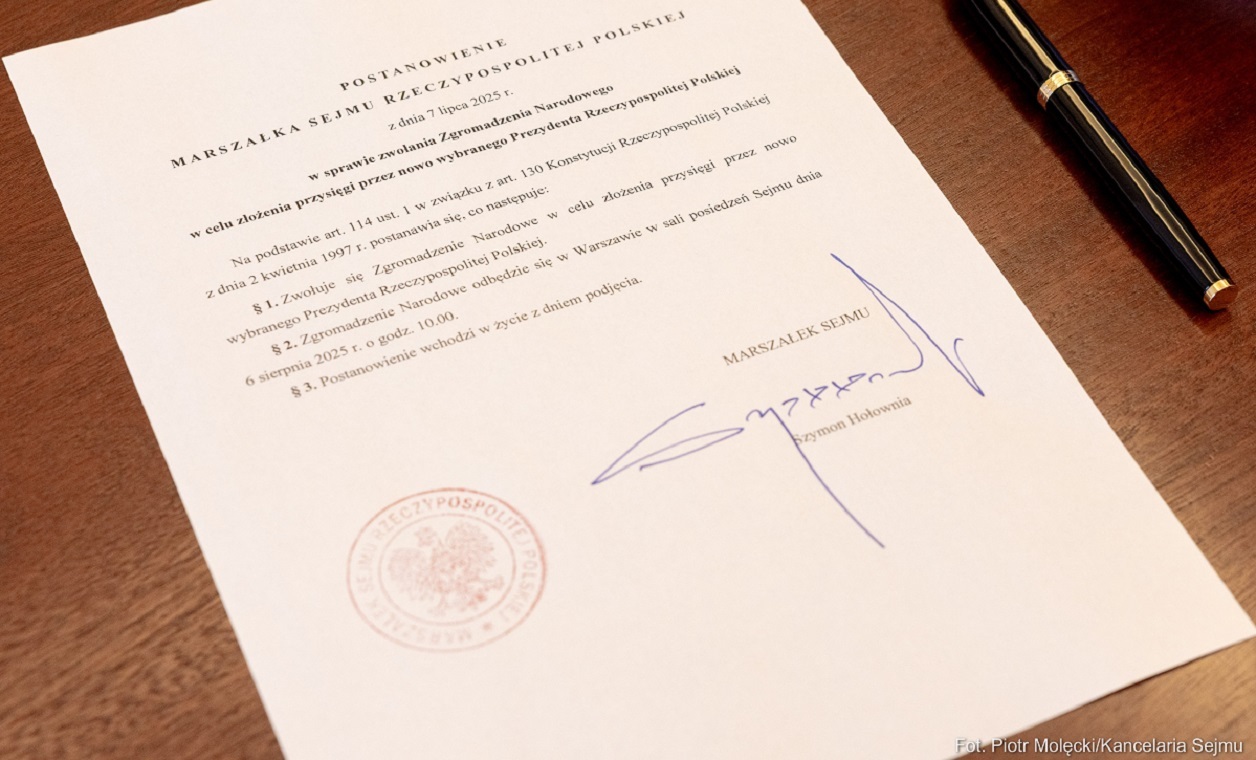 POSTANOWIENIE
MARSZAŁKA SEJMU RZECZYPOSPOLITEJ POLSKIEJ
z dnia 7 lipca 2025 r.
w sprawie zwołania Zgromadzenia Narodowego
w celu złożenia przysięgi przez nowo wybranego Prezydenta Rzeczypospolitej Polskiej
Na podstawie art. 114 ust. 1 w związku z art. 130 Konstytucji Rzeczypospolitej Polskiej
z dnia 2 kwietnia 1997 r. postanawia się, co następuje:
§ 1. Zwołuje się Zgromadzenie Narodowe w celu złożenia przysięgi przez nowo
wybranego Prezydenta Rzeczypospolitej Polskiej.
§ 2. Zgromadzenie Narodowe odbędzie się w Warszawie w sali posiedzeń Sejmu dnia
6 sierpnia 2025 r. o godz. 10.00.
§ 3. Postanowienie wchodzi w życie z dniem podjęcia.
MARSZAŁEK SEJMU
Szymon Hołownia
MARSZAŁEK SEJMU RZECZYPOSPOLITEJ POLSKIEJ
Fot. Piotr Molęcki/Kancelaria Sejmu